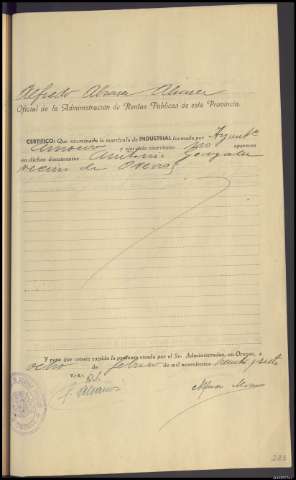 Alfredo Alvarez Alvarez
Oficial de la Administración de Rentas Públicas de esta Provincia.
CERTIFICO: Que examinada la matrícula de INDUSTRIAL formada por Ayunt.º
Amoeiro y ejercicio corriente no aparece
en dichos documentos Antonio González
vecino de
Y para que conste expido la presente visada por el Sr. Administrador, en Orense, a
ocho de febrero de mil novecientos treinta y siete
V.º B.º
283